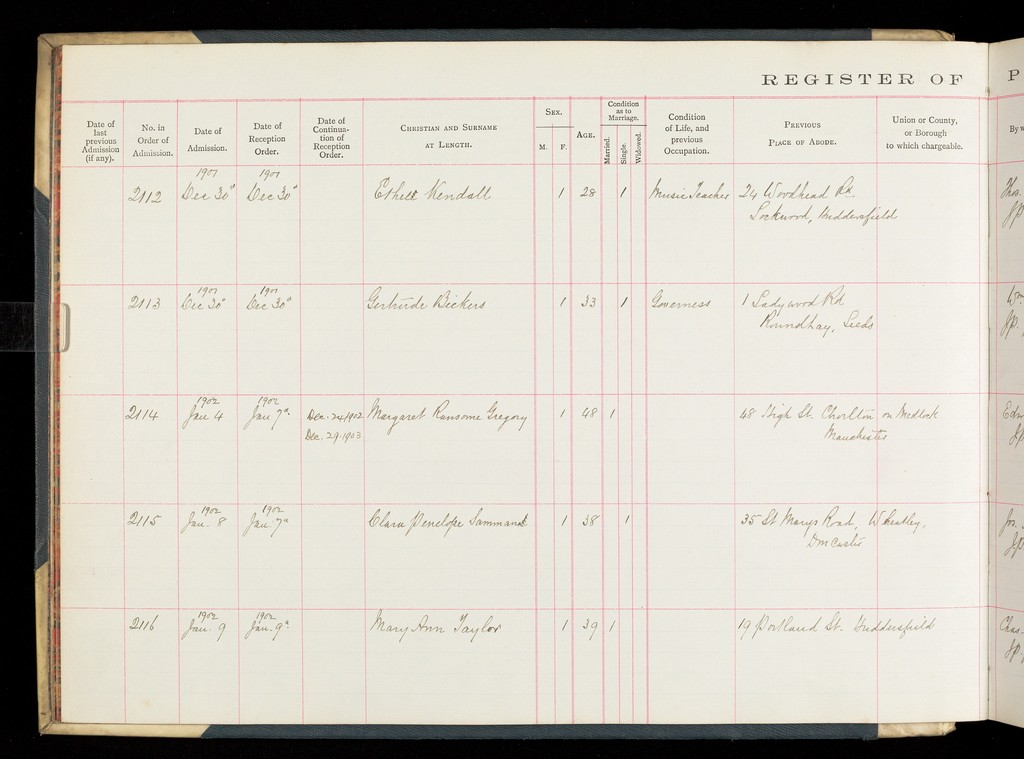 REGISTER OF P
Date of last previous Admission (if any).
No. in Order of Admission.
Date of Admission.
Date of Reception Order.
Date of Continuation of Reception Order.
CHRISTIAN AND SURNAME AT LENGTH.
SEX. M. F.
AGE.
Condition as to Marriage. Married. Single. Widowed.
Condition of Life, and previous Occupation.
PREVIOUS PLACE OF ABODE.
Union or County, or Borough to which chargeable.
By w
1901 1901
2112 Dec 30" Dec 30" Ethell Kendall 1 28 1 Music Teacher 24 Woodhead Rd Thos.
Lockwood, Huddersfield JP
1901 1901
2113 Dec 30" Dec 30" Gertrude Bickers 1 33 1 Governess 1 Ladywood Rd Wm
Roundhay, Leeds JP.
1902 1902
2114 Jan 4 Jan 7" Dec. 24 1902 Margaret Ransome Gregory 1 48 1 48 High St. Chorlton on Medlock Edw
Dec. 29. 1903 Manchester JP
1902 1902
2115 Jan. 8 Jan. 7" Clara Penelope 1 38 1 35 St Marys Road, Wheatley. Jos.
Doncaster JP
1902 1902
2116 Jan. 9 Jan. 9" Mary Ann Taylor 1 39 1 19 Portland St. Huddersfield Chas.
JP.